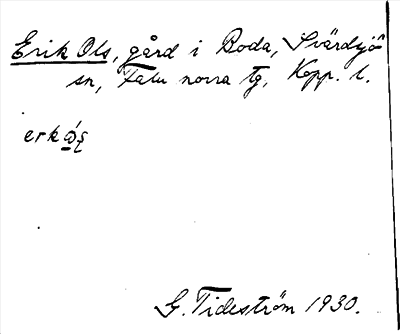 Erik Ols, gård i Boda, Svärdsjö
sn, Falu norra tg, Kopp. l.
G. Tideström 1930.